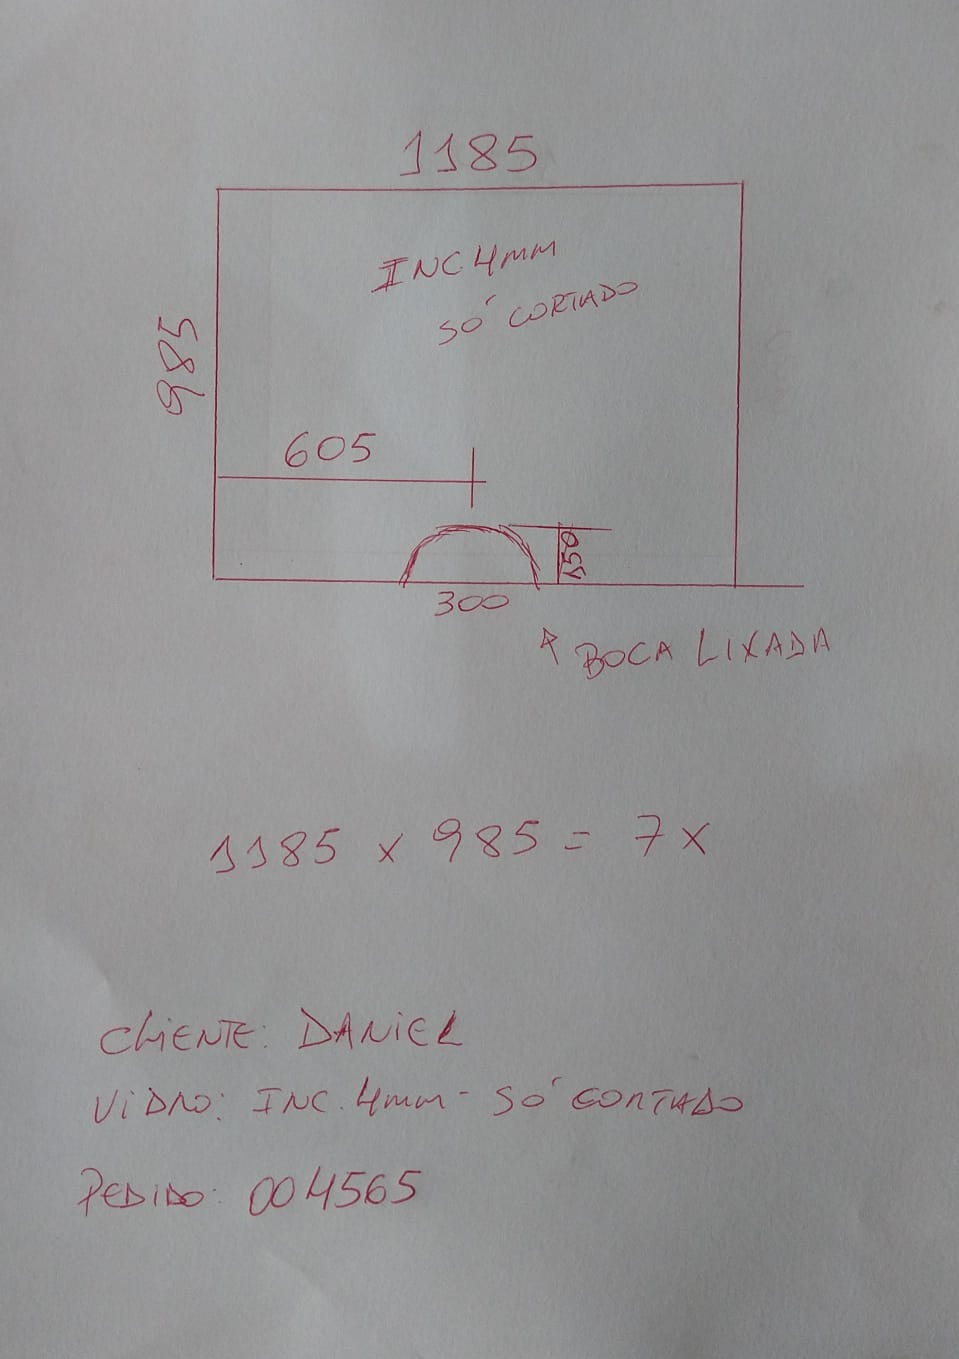 1185
INC.4mm
SÓ CORTADO
985
605
150
300
BOCA LIXADA
1185 x 985 = 7x
CLIENTE: DANIEL
VIDRO: INC. 4mm - SÓ CORTADO
PEDIDO: 004565